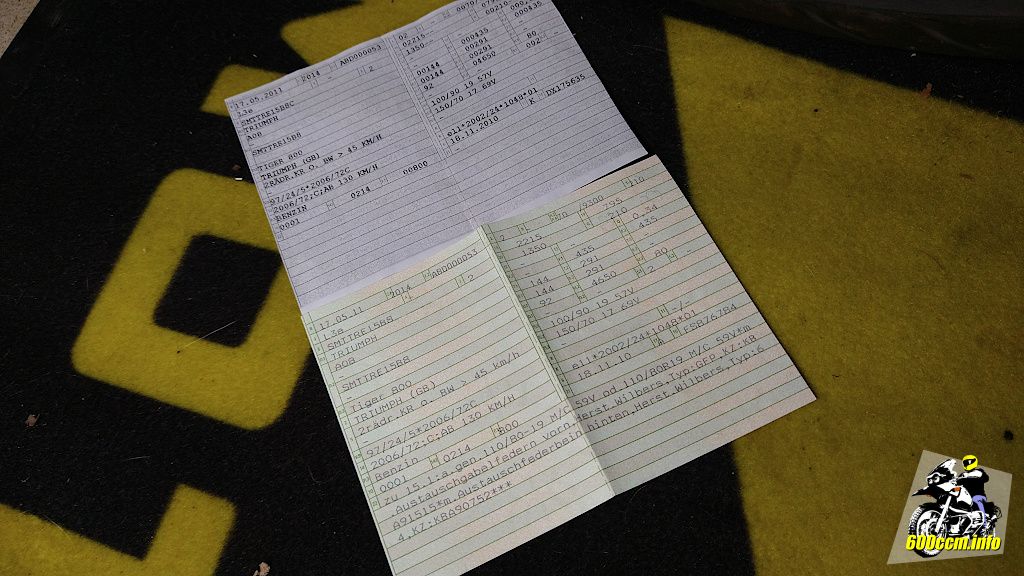 17.05.2011 2014 ABD000053
L3e 2
SMTTRE15B8C
TRIUMPH
A08
SMTTRE15B8
TIGER 800
TRIUMPH (GB)
2RÄDR.KR O. BW > 45 KM/H
97/24/5*2006/72C
2006/72;C;AB 130 KM/H
BENZIN 0214 00800
0001
02
02215
1350--
000435
00144 00291
00144 00291
92 04650 80
092
100/90 19 57V
150/70 17 69V
e11*2002/24*1048*01
18.11.2010 K DX175635
17.05.11 2014 ABD000053
L3e 2
SMTTRE15B8
TRIUMPH
A08
SMTTRE15B8
Tiger 800
TRIUMPH (GB)
2rädr.KR O. BW > 45 km/h
97/24/5*2006/72C
2006/72;C;AB 130 KM/H
Benzin 0214 800
0001
9300 110
2215 795
1350 210 0,34
435 435
144 291
144 291
92 4650 80
2
100/90 19 57V
150/70 17 69V
e11*2002/24*1048*01 -/-
18.11.10 A
zu 15.1:a.gen.110/80-19 M/C 59V od.110/80R19 M/C 59V*m
.Austauschgabelfedern vorn,Herst.Wilbers,Typ:GFP,KZ:KB
A91515*m.Austauschfederbein hinten,Herst.Wilbers,Typ:6
4,KZ:KBA90752***
600ccm.info